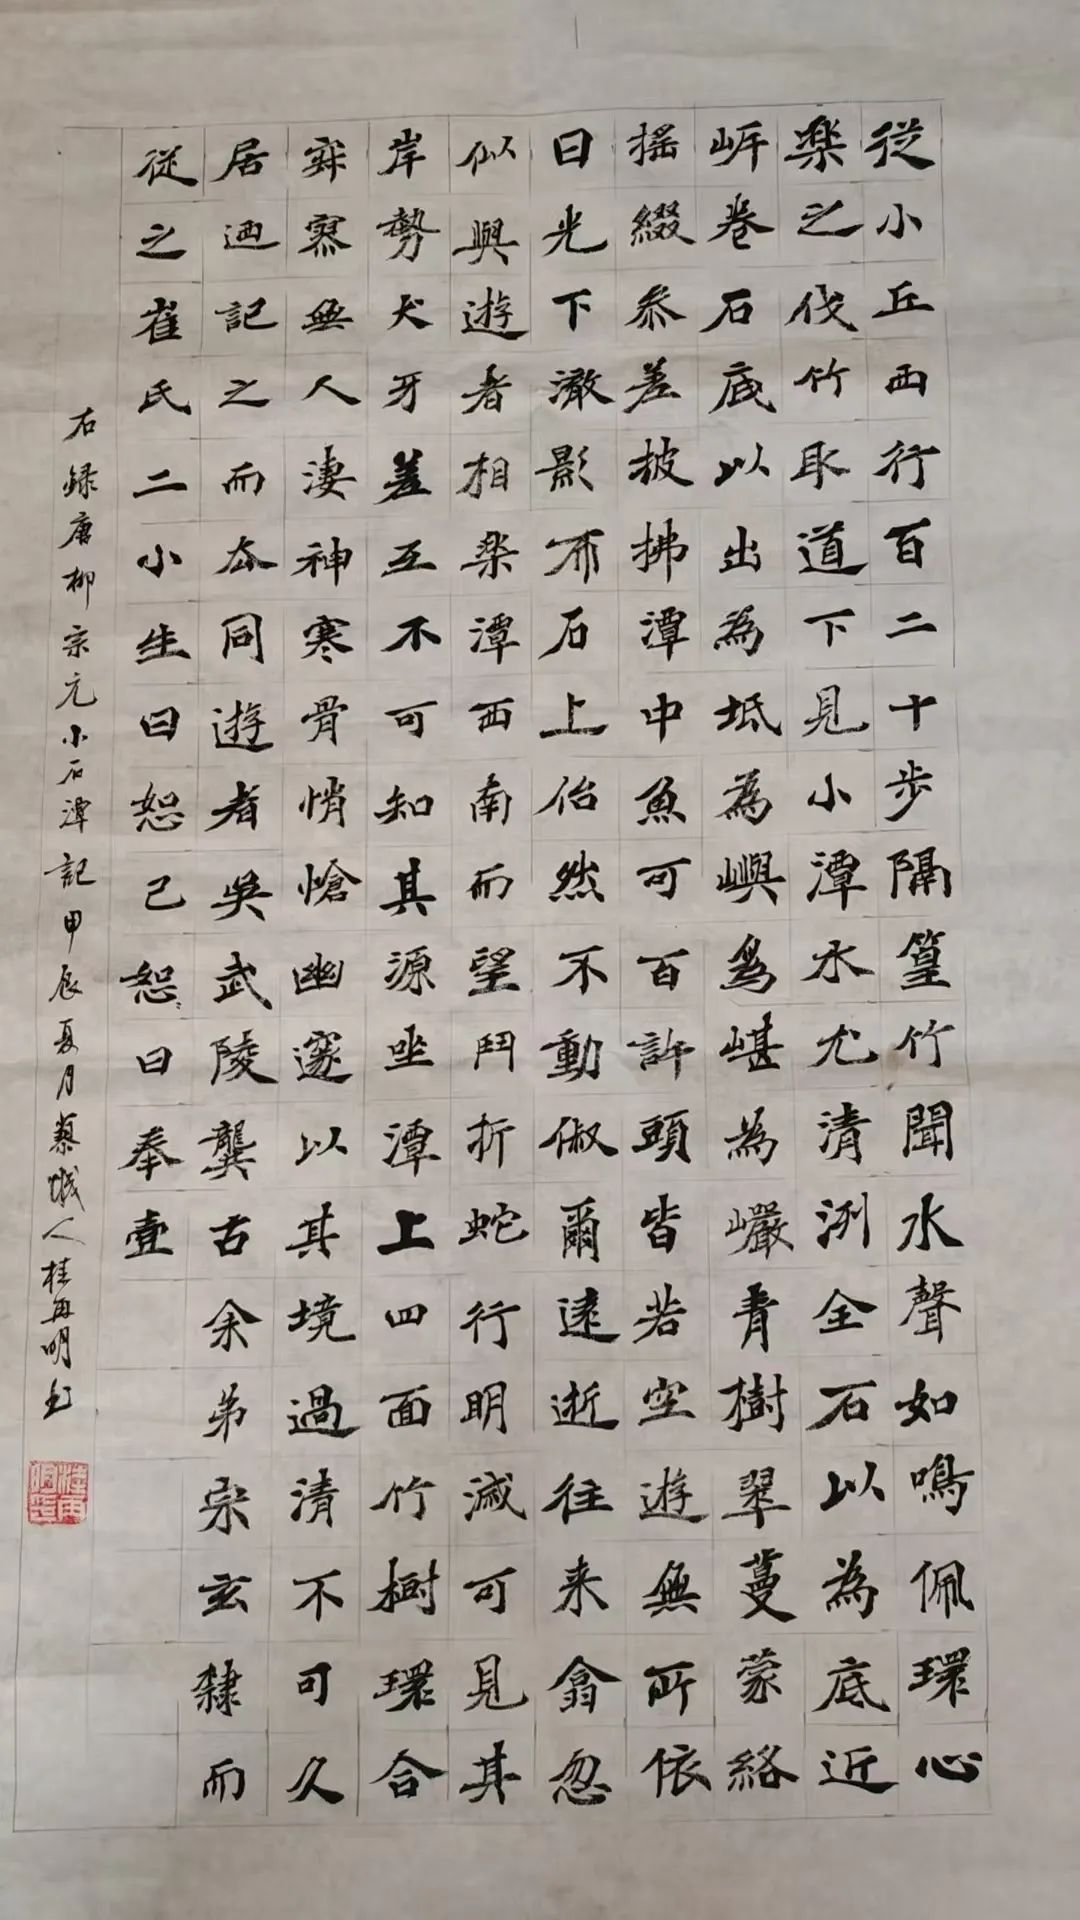 從小丘西行百二十步隔篁竹聞水聲如鳴佩環心
樂之伐竹取道下見小潭水尤清洌全石以為底近
岸卷石底以出為坻為嶼為嵁為巗青樹翠蔓蒙絡
搖綴參差披拂潭中魚可百許頭皆若空遊無所依
日光下澈影布石上佁然不動俶爾遠逝往来翕忽
似與遊者相樂潭西南而望鬥折蛇行明滅可見其
岸勢犬牙差互不可知其源坐潭上四面竹樹環合
寂寥無人淒神寒骨悄愴幽邃以其境過清不可久
居迺記之而去同遊者吳武陵龔古余弟宗玄隸而
從之崔氏二小生曰恕己恕曰奉壹
右録唐柳宗元小石潭記甲辰夏月蔡城人桂再明书
桂再明印